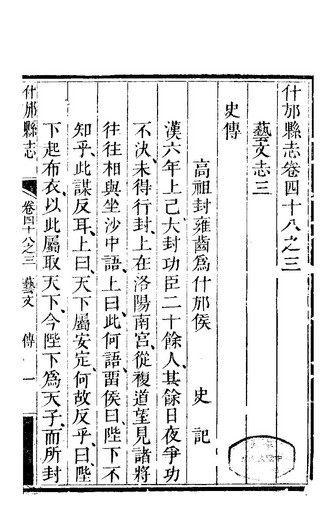 什邡縣志卷四十八之三
藝文志三
史傳
高祖封雍齒爲什邡侯　史記
漢六年上己大封功臣二十餘人、其餘日夜爭功
不決、未得行封、上在洛陽南宮、從複道望見諸將
往往相與坐沙中語、上曰、此何語、畱侯曰、陛下不
知乎、此謀反耳、上曰、天下屬安定、何故反乎、曰、陛
下起布衣、以此屬取天下、今陛下爲天子、而所封
什邡縣志　卷四十八之三　藝文　傳　一